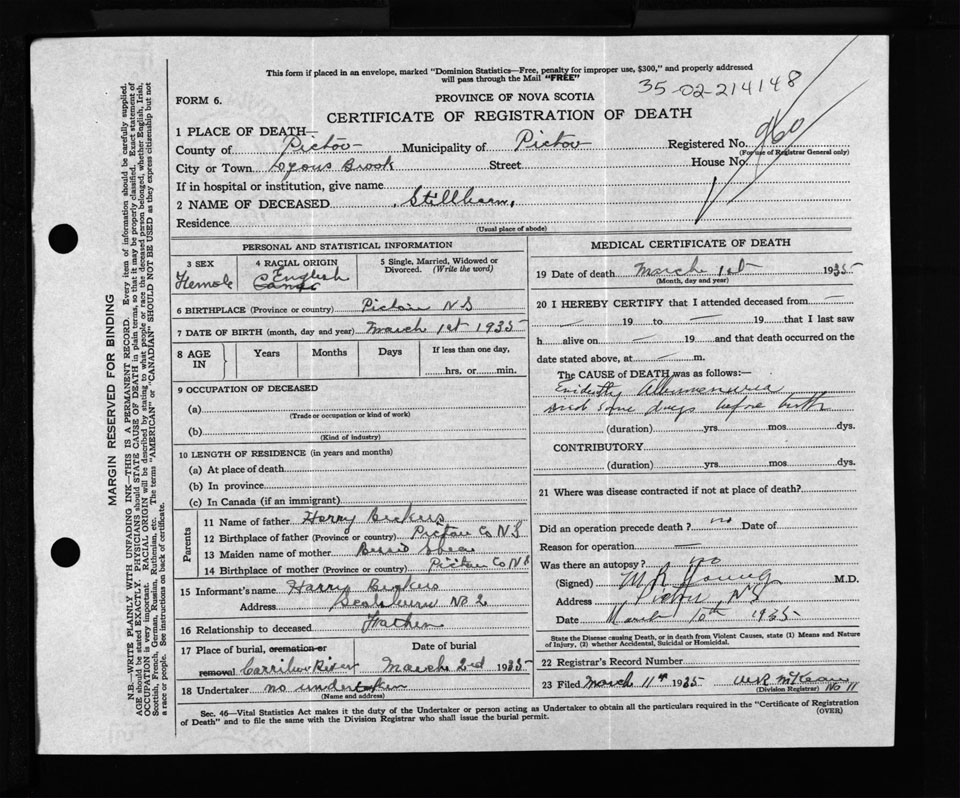 This form if placed in an envelope, marked "Dominion Statistics—Free, penalty for improper use, $300," and properly addressed
will pass through the Mail "FREE"
35-02-214148
FORM 6.
PROVINCE OF NOVA SCOTIA
CERTIFICATE OF REGISTRATION OF DEATH
960
1 PLACE OF DEATH—
County of Pictou Municipality of Pictou Registered No.
(For use of Registrar General only)
City or Town Lyons Brook Street House No.
If in hospital or institution, give name
2 NAME OF DECEASED Stillborn
Residence
(Usual place of abode)
PERSONAL AND STATISTICAL INFORMATION
3 SEX
Female
4 RACIAL ORIGIN
English
5 Single, Married, Widowed or Divorced. (Write the word)
6 BIRTHPLACE (Province or country) Pictou N S
7 DATE OF BIRTH (month, day and year) March 1st 1935
8 AGE IN
Years Months Days
If less than one day,
hrs. or min.
9 OCCUPATION OF DECEASED
(a)
(Trade or occupation or kind of work)
(b)
(Kind of industry)
10 LENGTH OF RESIDENCE (in years and months)
(a) At place of death
(b) In province
(c) In Canada (if an immigrant)
Parents
11 Name of father Harry
12 Birthplace of father (Province or country) Pictou Co N S
13 Maiden name of mother Bessie
14 Birthplace of mother (Province or country) Pictou Co N S
15 Informant's name Harry
Address Scotsburn No 2
16 Relationship to deceased Father
17 Place of burial, cremation or removal Date of burial
Carribou River March 2nd 1935
18 Undertaker no undertaker
(Name and address)
MEDICAL CERTIFICATE OF DEATH
19 Date of death March 1st 1935
(Month, day and year)
20 I HEREBY CERTIFY that I attended deceased from —
— 19 to — 19 that I last saw
h alive on — 19 and that death occurred on the
date stated above, at — m.
The CAUSE of DEATH was as follows:—
Evidently Albumenuria
died some days before birth
(duration) yrs mos dys.
CONTRIBUTORY
(duration) yrs mos dys.
21 Where was disease contracted if not at place of death?
Did an operation precede death? no Date of
Reason for operation —
Was there an autopsy? no
(Signed) M R Young M.D.
Address Pictou, N S
Date March 10th 1935
State the Disease causing Death, or in death from Violent Causes, state (1) Means and Nature
of Injury, (2) whether Accidental, Suicidal or Homicidal.
22 Registrar's Record Number
23 Filed March 11th 1935
(Division Registrar) No 11
Sec. 46—Vital Statistics Act makes it the duty of the Undertaker or person acting as Undertaker to obtain all the particulars required in the "Certificate of Registration
of Death" and to file the same with the Division Registrar who shall issue the burial permit.
(OVER)
MARGIN RESERVED FOR BINDING
N.B.—WRITE PLAINLY WITH UNFADING INK—THIS IS A PERMANENT RECORD. Every item of information should be carefully supplied.
AGE should be stated EXACTLY. PHYSICIANS should STATE CAUSE OF DEATH in plain terms, so that it may be properly classified. Exact statement of
OCCUPATION is very important. RACIAL ORIGIN will be described by stating to what people or race the deceased person belonged, whether English, Irish,
Scottish, French, German, Russian, Ruthenian, etc. The terms "AMERICAN" or "CANADIAN" SHOULD NOT BE USED as they express citizenship but not
a race or people. See instructions on back of certificate.